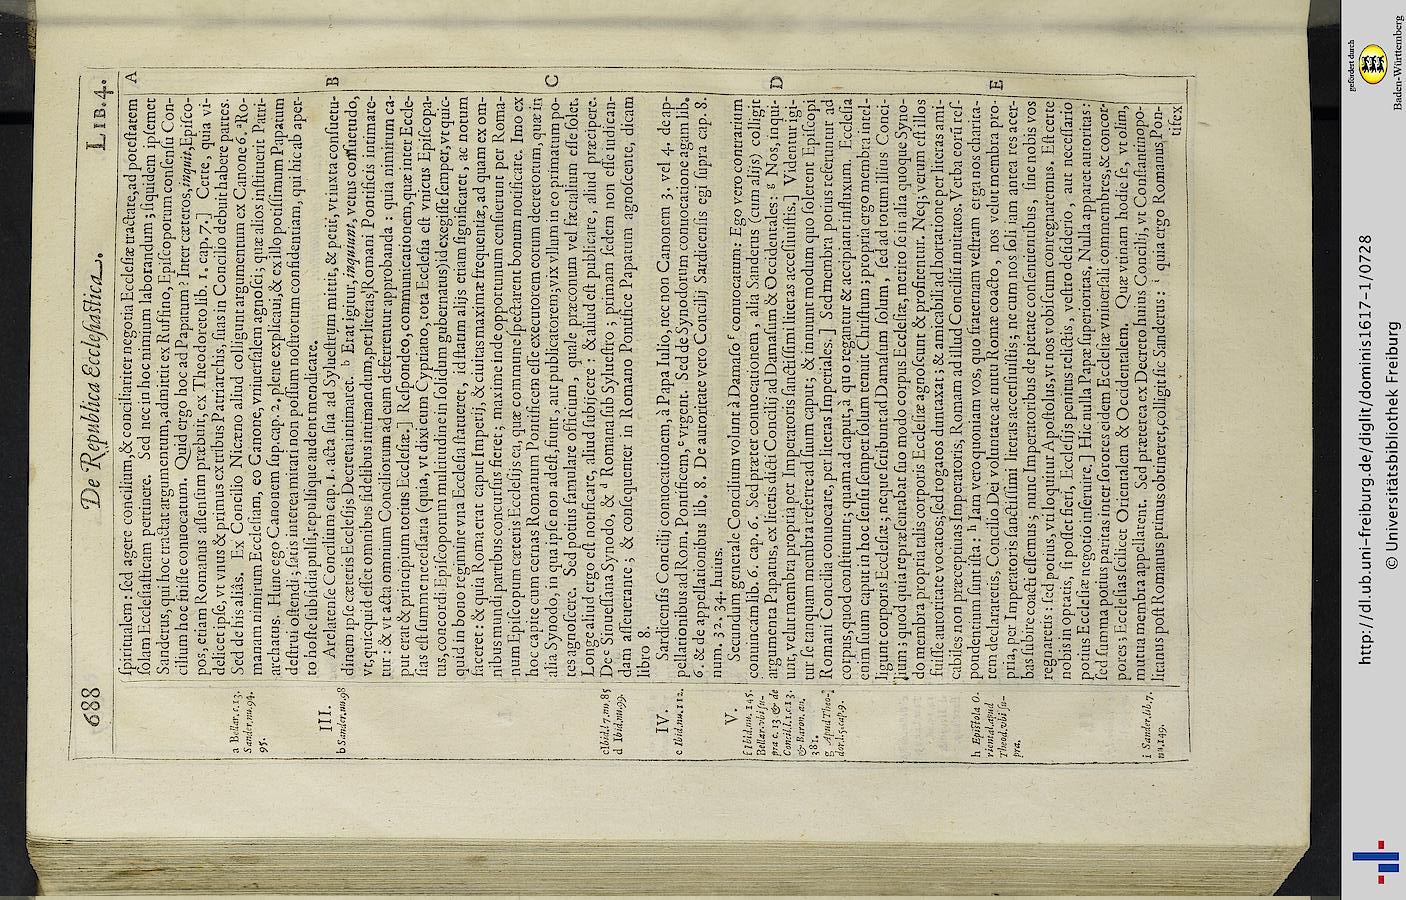 688 De Republica Ecclesiastica. LIB. 4.
spiritualem: sed agere concilium, & conciliariter negotia Ecclesiæ tractare, ad potestatem A
solam Ecclesiasticam pertinere. Sed nec in hoc nimium laborandum; siquidem ipsemet
Sanderus, qui hoc tractat argumentum, admittit ex Ruffino, Episcoporum consensu Con-
cilium hoc fuisse conuocatum. Quid ergo hoc ad Papatum? Inter cæteros, inquit, Episco-
pos, etiam Romanus assensum præbuit, ex Theodoreto lib. 1. cap. 7.] Certe, quia vi-
delicet ipse, vt vnus & primus ex tribus Patriarchis, suas in Concilio debuit habere partes.
Sed de bis aliàs. Ex Concilio Nicæno aliud colligunt argumentum ex Canone 6. a Ro-
manam nimirum Ecclesiam, eo Canone, vniuersalem agnosci; quæ alios instituerit Patri-
archatus. Hunc ego Canonem sup. cap. 2. plene explicaui, & ex illo potissimum Papatum
destrui ostendi; satis interea mirati non possum nostrorum confidentiam, qui hic ab aper-
to hoste subsidia pulsi, repulsique audent mendicare.
Arelatense Concilium cap. 1. acta sua ad Syluestrum mittit, & petit, vt iuxta consuetu- B
dinem ipse cæteris Ecclesijs Decreta intimaret. b Erat igitur, inquiunt, vetus consuetudo,
vt, quicquid esset omnibus fidelibus intimandum, per literas Romani Pontificis intimare-
tur: & vt acta omnium Conciliorum ad eum deferrentur approbanda: quia nimirum ca-
put erat & principium totius Ecclesiæ.] Respondeo, communicationem, quæ inter Eccle-
sias est summe necessaria (quia, vt dixi cum Cypriano, tota Ecclesia est vnicus Episcopa-
tus, concordi Episcoporum multitudine in solidum gubernatus) id exegisse semper, vt quic-
quid in bono regimine vna Ecclesia statueret, id statum alijs etiam significaret, ac notum
faceret: & quia Roma erat caput Imperij, & ciuitas maximæ frequentiæ, ad quam ex om-
nibus mundi partibus concursus fieret; maxime inde opportunum censuerunt per Roma-
num Episcopum cæteris Ecclesijs ea, quæ commune spectarent bonum notificare. Imo ex
hoc capite cum cernas Romanum Pontificem esse executorem eorum decretorum, quæ in C
alia Synodo, in qua ipse non adest, fiunt, aut publicatorem; vix vllum in eo primatum po-
tes agnoscere. Sed potius famulare officium, quale præconum vel fæcialium esse solet.
Longe aliud ergo est notificare, aliud subijcere: & aliud est publicare, aliud præcipere.
De c Sinuessana Synodo, & d Romana sub Syluestro; primam sedem non esse iudican-
dam asseuerante; & consequenter in Romano Pontifice Papatum agnoscente, dicam
libro 8.
Sardicensis Concilij conuocationem, à Papa Iulio, nec non Canonem 3. vel 4. de ap-
pellationibus ad Rom. Pontificem, e vrgent. Sed de Synodorum conuocatione agam lib.
6. & de appellationibus lib. 8. De autoritate vero Concilij Sardicensis egi supra cap. 8.
num. 32. 34. huius.
Secundum generale Concilium volunt à Damaso f conuocatum: Ego vero contrarium
conuincam lib. 6. cap. 6. Sed præter conuocationem, alia Sanderus (cum alijs) colligit D
argumenta Papatus, ex literis dicti Concilij ad Damasum & Occidentales: g Nos, inqui-
unt, velut membra propria per Imperatoris sanctissimi literas accessiuistis.] Videntur igi-
tur se tanquam membra referre ad suum caput; & in unum modum quo solerent Episcopi
Romani Concilia conuocare, per literas Imperiales.] Sed membra potius referuntur ad
corpus, quod constituunt; quam ad caput, à quo regantur & accipiant influxum. Ecclesia
enim suum caput in hoc sensu semper solum tenuit Christum; propria ergo membra intel-
ligunt corporis Ecclesiæ; neque scribunt ad Damasum solum, sed ad totum illius Conci-
lium; quod quia repræsentabat suo modo corpus Ecclesiæ, merito se in alia quoque Syno-
do membra propria talis corporis Ecclesiæ agnoscunt & profitentur. Neq; verum est illos
fuisse autoritate vocatos; sed rogatos duntaxat; & amicabili adhortatione per literas ami-
cabiles non præceptuas Imperatoris, Romam ad illud Concilium inuitatos. Verba eorum res-
pondentium sunt ista: h Iam vero quoniam vos, quo fraternam vestram erga nos charita- E
tem declararetis, Concilio Dei voluntate ac nutu Romæ coacto, nos velut membra pro-
pria, per Imperatoris sanctissimi literas accersiuistis; ne cum nos soli iam antea res acer-
bas subire coacti essemus; nunc Imperatoribus de pietate consentientibus, sine nobis vos
regnaretis: sed potius, vti loquitur Apostolus, vt nos vobiscum conregnaremus. Est certe
nobis in optatis, si posset fieri, Ecclesijs penitus relictis, vestro desiderio, aut necessario
potius Ecclesiæ negotio inseruire.] Hic nulla Papæ superioritas, Nulla apparet autoritas:
sed summa potius paritas inter sorores eidem Ecclesiæ vniuersali commembres, & concor-
pores; Ecclesias scilicet Orientalem & Occidentalem. Quæ vtinam hodie se, vt olim,
mutua membra appellarent. Sed præterea ex Decreto huius Concilij, vt Constantinopo-
litanus post Romanus primus obtineret, colligit sic Sanderus: i quia ergo Romanus Pon-
tifex
a Bellar. c. 13.
Sander. nu. 94.
95.
III.
b Sander. nu. 98
c Ibid. l. 7. nu. 85
d Ibid. nu. 99.
IV.
e Ibid. nu. 112.
V.
f Ibid. nu. 145.
Bellar. vbi su-
pra c. 13. & de
Concil. l. 1. c. 13.
& Baron. an.
381.
g Apud Theo-
dor. l. 5. cap. 9.
h Epistola O-
riental. apud
Theod. vbi su-
pra.
i Sander. lib. 7.
nu. 149.
http://dl.ub.uni-freiburg.de/diglit/dominis1617-1/0728
© Universitätsbibliothek Freiburg
gefördert durch
Baden-Württemberg